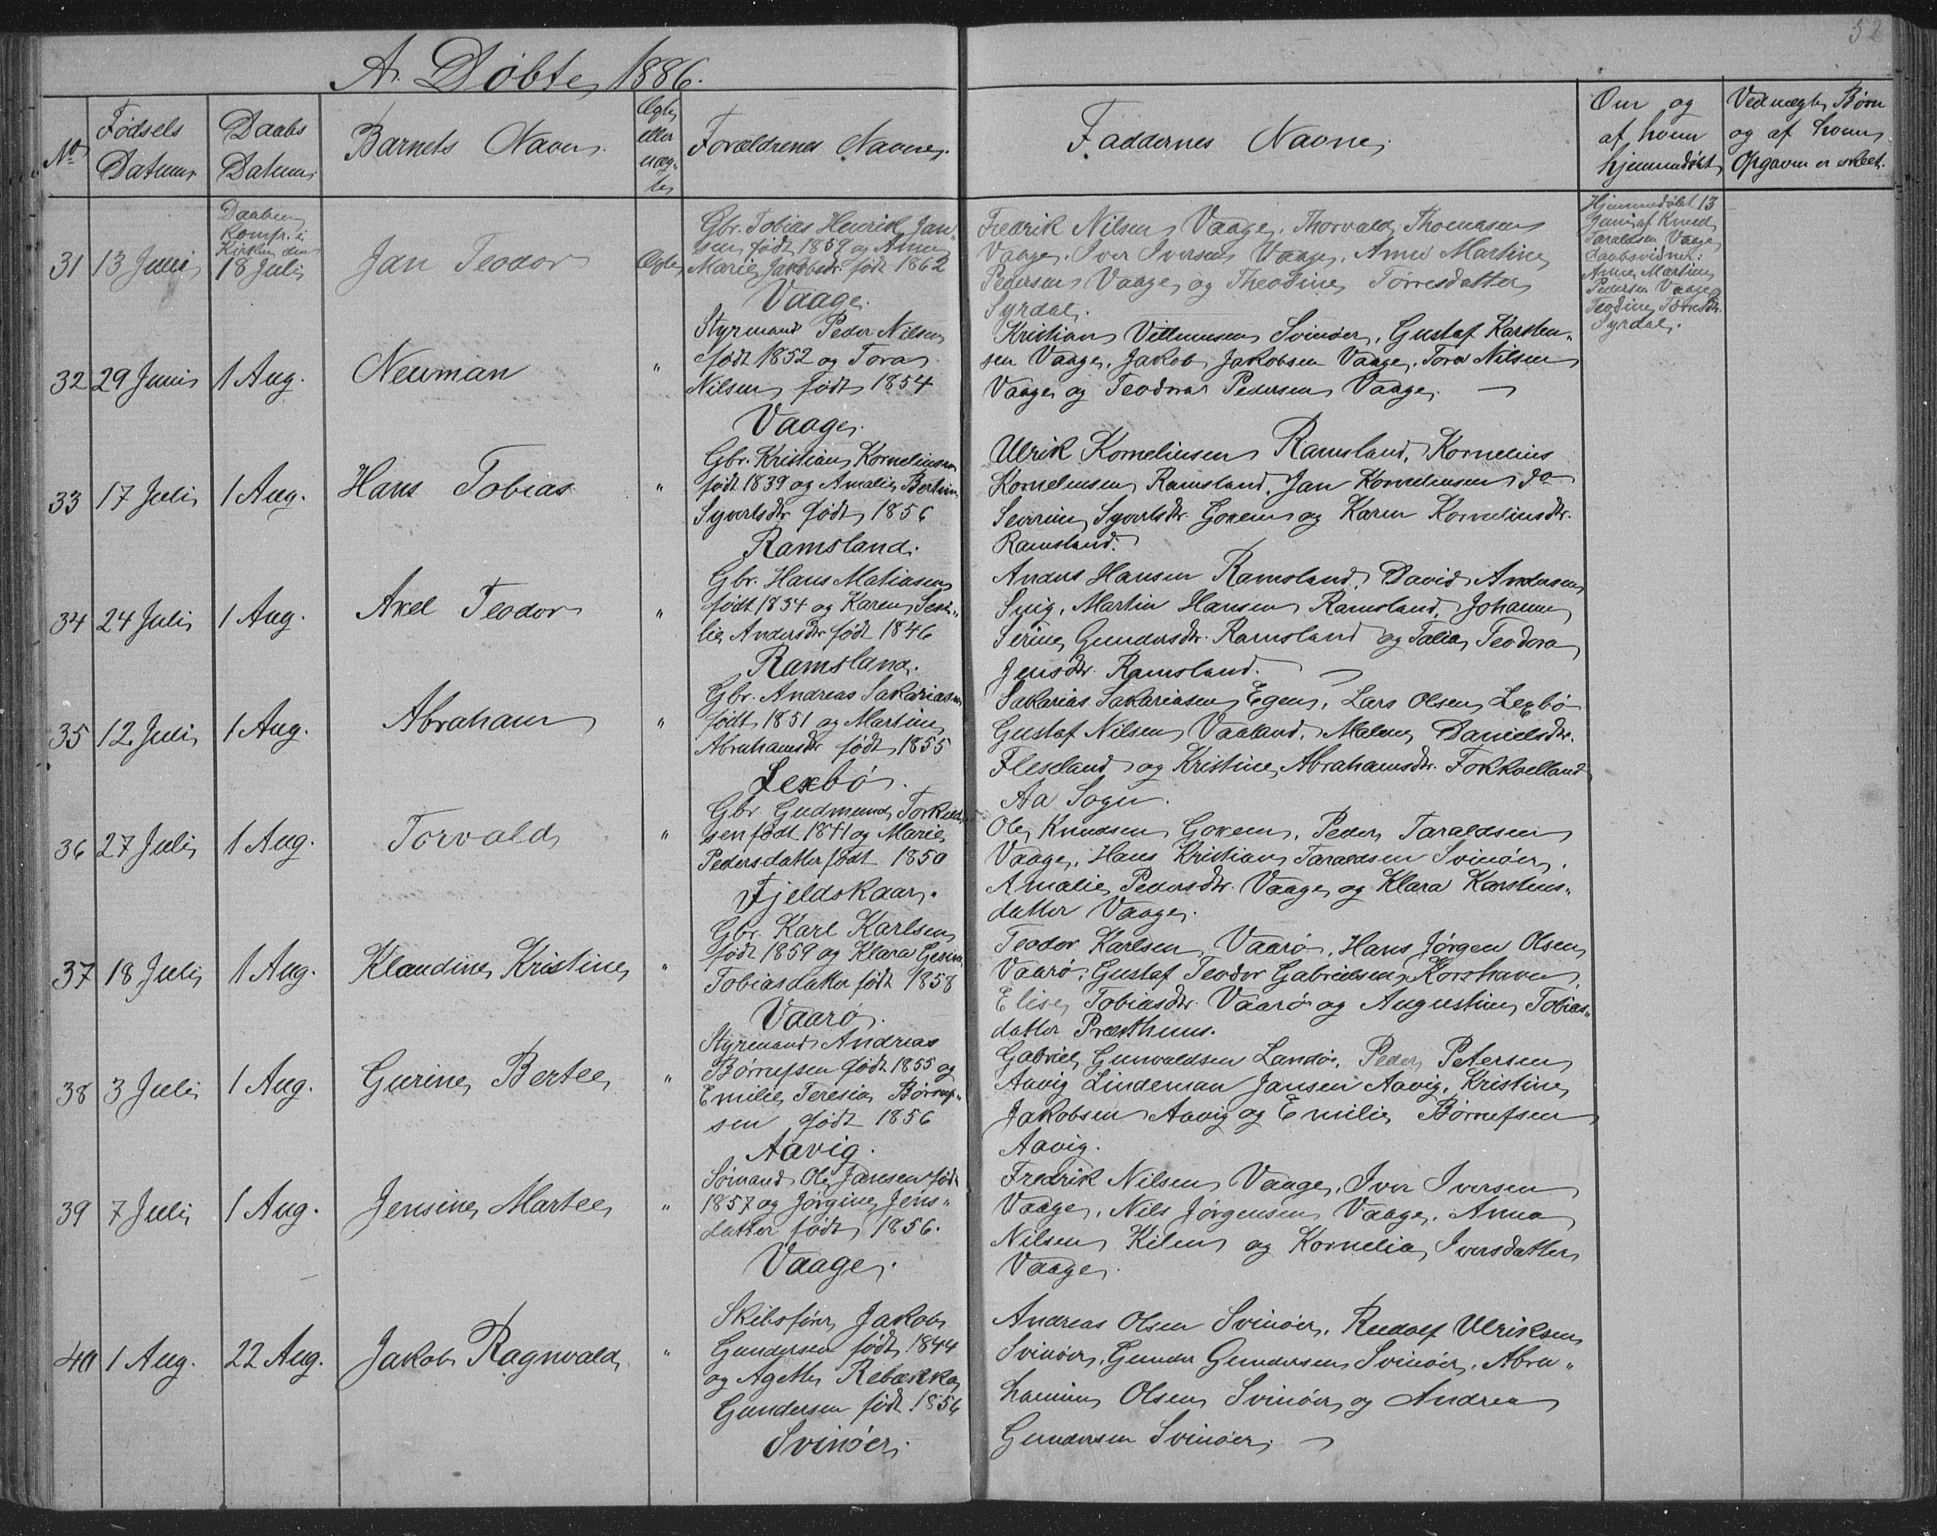 52
A. Døbte, 1886.
No
Fødsels Datum.
Daabs Datum.
Barnets Navn.
Ægte eller uægte
Forældrenes Navne.
Faddernes Navne.
Om og af hvem hjemmedøbt
Ved uægte Børn og af hvem Opgaven er skeet.
31
13 Juni
Daaben
Komfr. i
Kirken den
18 Juli
Jan Teodor
Ægte
Gbr. Tobias Henrik Jan-
sen født 1859 og Anne
Marie Jakobsdr. født 1862
Vaage.
Fredrik Nilsen Vaage, Thorvald Thomasen
Vaage, Iver Iversen Vaage, Anne Martine
Pedersen Vaage og Theodine Tørresdatter
Syrdal.
Hjemmedøbt 13
Juni af Knud
Taraldsen Vaage
Daabsvidner:
Anne Martine
Pedersen Vaage og
Teodine Tørresdr.
Syrdal.
32
29 Juni
1 Aug.
Neuman
"
Styrmand Peder Nilsen
født 1852 og Tora
Nilsen født 1854
Vaage.
Kristian Villumsen Svinøer, Gustaf Karsten-
sen Vaage, Jakob Jakobsen Vaage, Tora Nilsen
Vaage og Teodora Pedersen Vaage.
33
17 Juli
1 Aug.
Hans Tobias
"
Gbr. Kristian Kornelinsen
født 1839 og Amalie Bertine
Syvertsdr. født 1856
Ramsland.
Ulrik Korneliusen Ramsland, Kornelius
Korneliusen Ramsland, Jan Korneliusen do
Severine Syvertsdr. Goxem og Karen Korneliusdr.
Ramsland.
34
24 Juli
1 Aug.
Axel Teodor
"
Gbr. Hans Matiasen
født 1834 og Karen Sesi-
lie Andersdr. født 1846
Ramsland.
Anders Hansen Ramsland, David Andersen
Spig, Martin Hansen Ramsland, Johanne
Serine Gundersdr. Ramsland og Talia Teodora
Jensdr. Ramsland.
35
12 Juli
1 Aug.
Abraham
"
Gbr. Andreas Sakariasen
født 1851 og Martine
Abrahamsdr. født 1855
Lexbø.
Sakarias Sakariasen Egen, Lars Olsen Lexbø
Gustaf Nilsen Vaaland, Malene Danielsdr.
Fleseland og Kristine Abrahamsdr. Fokkelland
Aa Sogn.
36
27 Juli
1 Aug.
Torvald
"
Gbr. Gudmund Torkild-
sen født 1841 og Marie
Pedersdatter født 1850
Fjeldskaar.
Ole Knudsen Goxem, Peder Taraldsen
Vaage, Hans Kristian Taraldsen Svinøer,
Amalie Pedersdr. Vaage og Klara Karstens-
datter Vaage.
37
18 Juli
1 Aug.
Klaudine Kristine
"
Gbr. Karl Karlsen
født 1859 og Klara Gesine
Tobiasdatter født 1858
Vaarø.
Teodor Karlsen Vaarø, Hans Jørgen Olsen
Vaarø, Gustaf Teodor Gabrielsen Korshavn,
Elise Tobiasdr. Vaarø og Augustine Tobias-
datter Præsthuus.
38
3 Juli
1 Aug.
Gurine Bertee
"
Styrmand Andreas
Børrufsen født 1855 og
Emilie Teresia Børruf-
sen født 1856
Aavig.
Gabriel Gunvaldsen Landø, Peder Petersen
Aavig Lindeman Jansen Aavig, Kristine
Jakobsen Aavig og Emilie Børrufsen
Aavig.
39
7 Juli
1 Aug.
Jensine Martee
"
Sømand Ole Jansen født
1857 og Jørgine Jens-
datter født 1856.
Vaage.
Fredrik Nilsen Vaage, Iver Iversen
Vaage, Nils Jørgensen Vaage, Anna
Nilsen Kilen og Kornelia Iversdatter
Vaage.
40
1 Aug.
22 Aug.
Jakob Ragnvald
"
Skibsfører Jakob
Gundersen født 1844
og Agethe Rebækka
Gundersen født 1856
Svinøer.
Andreas Olsen Svinøer, Rudolf Ulriksen
Svinøer, Gunder Gundersen Svinøer, Abra-
hamine Olsen Svinøer og Andrea
Gundersen Svinøer.